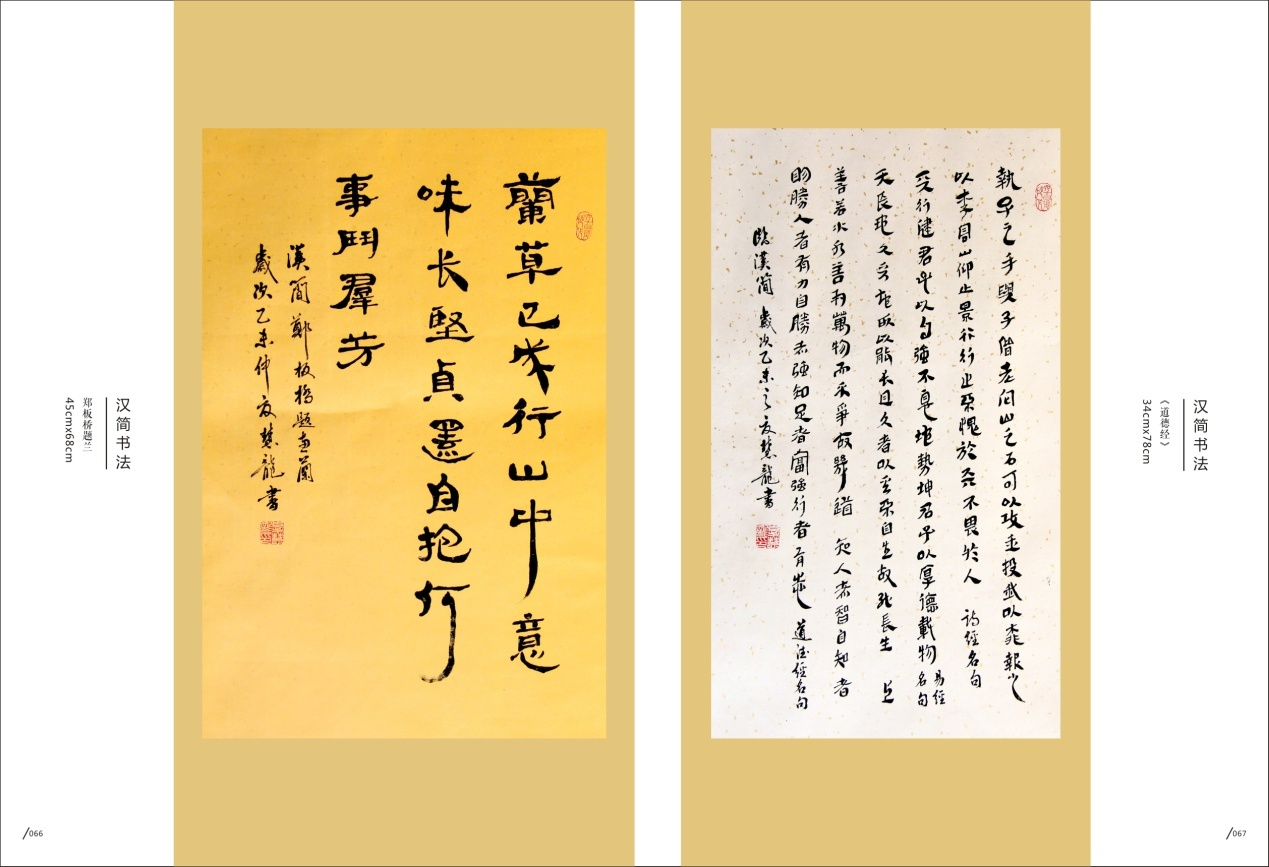 蘭草已成行山中意
味长堅貞還自抱何
事鬥羣芳
漢簡 鄭板橋題畫蘭
歲次乙未仲夏慧龍書
汉简书法
郑板桥题兰
45cmx68cm
/066
執子之手與子偕老山之石可以攻玉投我以桃報之
以李高山仰止景行行止不愧於天不畏於人 詩經名句
天行健君子以自強不息地勢坤君子以厚德載物 易經名句
天長地久天地所以能長且久者以其不自生故能長生 上
善若水水善利萬物而不爭故幾道 知人者智自知者
明勝人者有力自勝者強知足者富強行者有志 道德經名句
臨漢簡 歲次乙未之夏慧龍書
汉简书法
《道德经》
34cmx78cm
/067